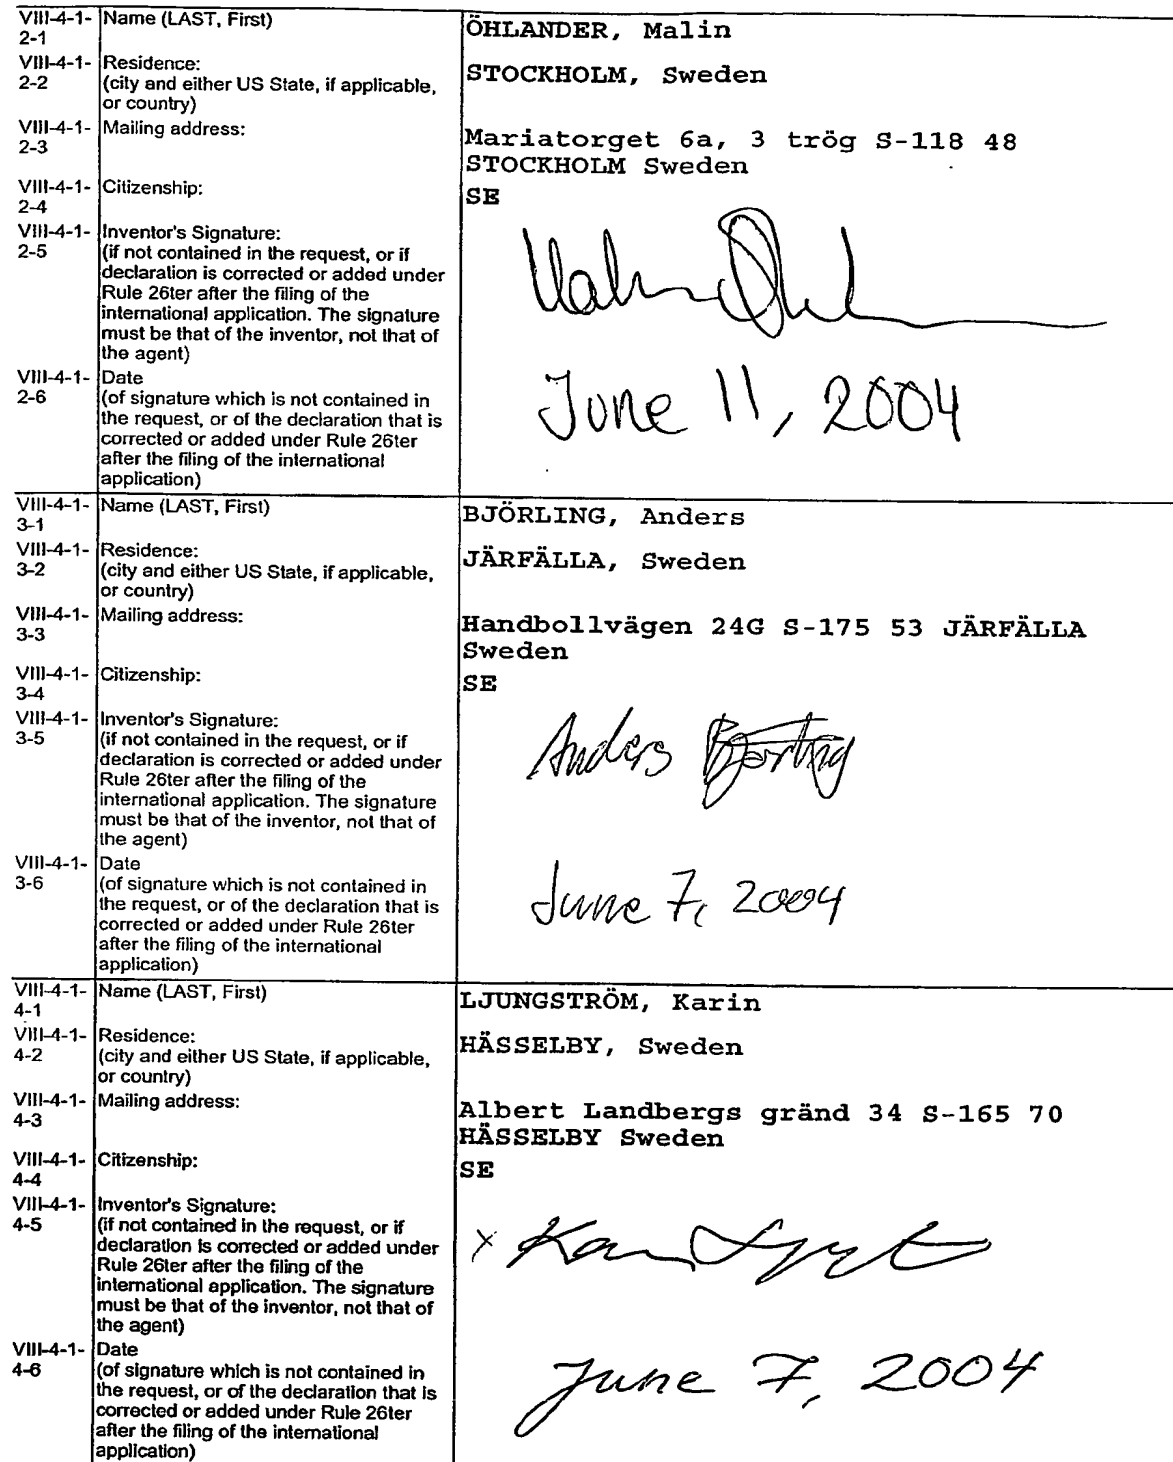 VIII-4-1- Name (LAST, First) ÖHLANDER, Malin
2-1
VIII-4-1- Residence: STOCKHOLM, Sweden
2-2 (city and either US State, if applicable,
or country)
VIII-4-1- Mailing address: Mariatorget 6a, 3 trög S-118 48
2-3 STOCKHOLM Sweden
VIII-4-1- Citizenship: SE
2-4
VIII-4-1- Inventor's Signature:
2-5 (if not contained in the request, or if
declaration is corrected or added under
Rule 26ter after the filing of the
international application. The signature
must be that of the inventor, not that of
the agent)
VIII-4-1- Date June 11, 2004
2-6 (of signature which is not contained in
the request, or of the declaration that is
corrected or added under Rule 26ter
after the filing of the international
application)
VIII-4-1- Name (LAST, First) BJÖRLING, Anders
3-1
VIII-4-1- Residence: JÄRFÄLLA, Sweden
3-2 (city and either US State, if applicable,
or country)
VIII-4-1- Mailing address: Handbollvägen 24G S-175 53 JÄRFÄLLA
3-3 Sweden
VIII-4-1- Citizenship: SE
3-4
VIII-4-1- Inventor's Signature: Anders Björling
3-5 (if not contained in the request, or if
declaration is corrected or added under
Rule 26ter after the filing of the
international application. The signature
must be that of the inventor, not that of
the agent)
VIII-4-1- Date June 7, 2004
3-6 (of signature which is not contained in
the request, or of the declaration that is
corrected or added under Rule 26ter
after the filing of the international
application)
VIII-4-1- Name (LAST, First) LJUNGSTRÖM, Karin
4-1
VIII-4-1- Residence: HÄSSELBY, Sweden
4-2 (city and either US State, if applicable,
or country)
VIII-4-1- Mailing address: Albert Landbergs gränd 34 S-165 70
4-3 HÄSSELBY Sweden
VIII-4-1- Citizenship: SE
4-4
VIII-4-1- Inventor's Signature: x
4-5 (if not contained in the request, or if
declaration is corrected or added under
Rule 26ter after the filing of the
international application. The signature
must be that of the inventor, not that of
the agent)
VIII-4-1- Date June 7, 2004
4-6 (of signature which is not contained in
the request, or of the declaration that is
corrected or added under Rule 26ter
after the filing of the international
application)